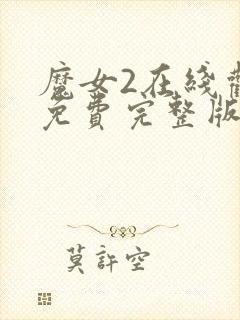 魔女2在綫觀
免費完整版
莫許空